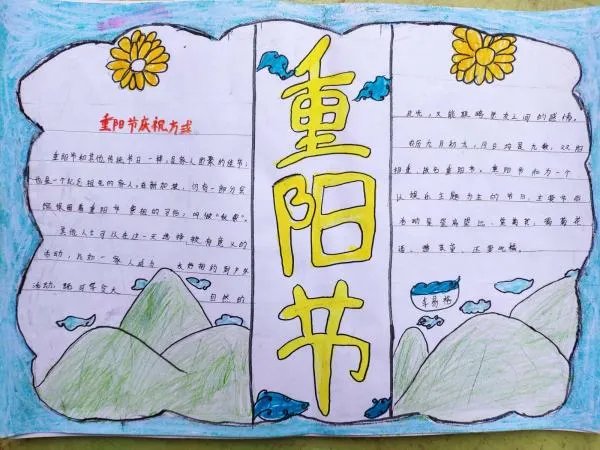 重阳节庆祝方式
重阳节和其他传统节日一样,是家人团聚的佳节;
也是一个纪念祖先的家人。在新加坡,仍有一部分家
保留着重阳节祭祖的习俗,叫做"秋祭"。
其他人士可以在这一天选择较有意义的
活动,比如一家人或与 友好相约到户外
活动,既可享受大 自然的
重阳节
风光,又能联络 友之间的感情。
农历九月初九,月日均是九数,双阳
相重,故名重阳节。重阳节 为一个
以娱乐主题为主的节日,主要节俗
活动是登高望远、赏菊花、 菊花
酒、插茱萸、还要吃糕。